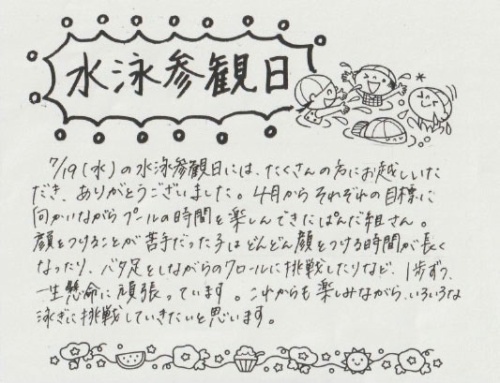 水泳参観日
7/19(水)の水泳参観日には、たくさんの方にお越しいた
だき、ありがとうございました。4月からそれぞれの目標に
向かいながらプールの時間を楽しんできたぱんだ組さん。
顔をつけることが苦手だった子はどんどん顔をつける時間が長く
なったり、バタ足をしながらのクロールに挑戦したりなど、1歩ずつ、
一生懸命に頑張っています。これからも楽しみながら、いろいろな
泳ぎに挑戦していきたいと思います。